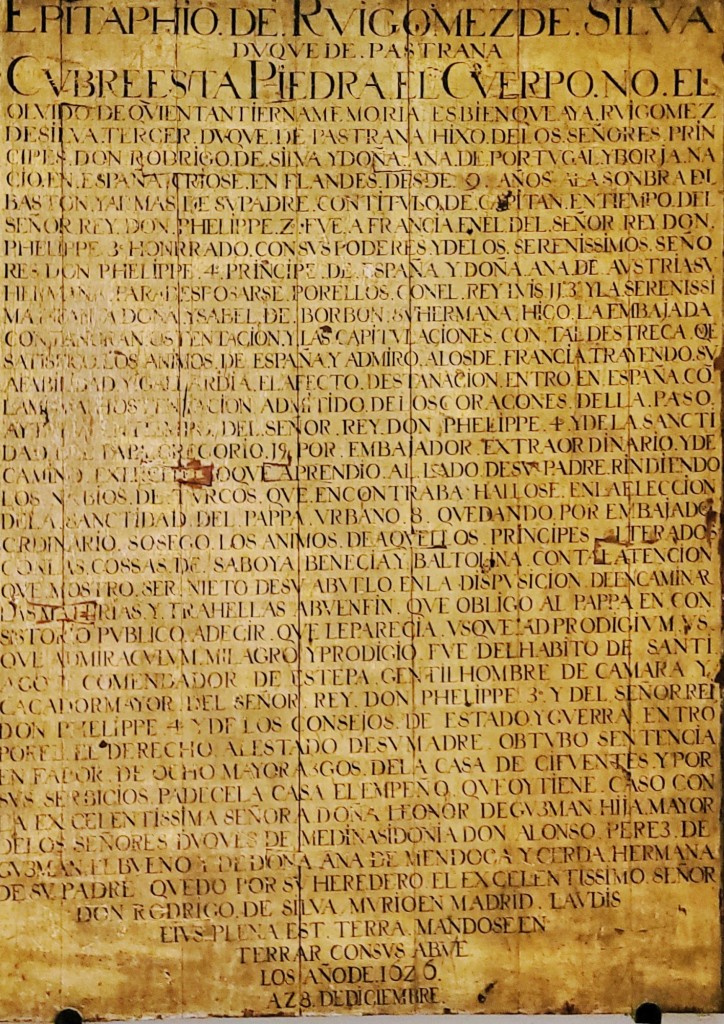 EPITAPHIO.DE.RVIGOMEZ DE.SILVA
DVQVE DE.PASTRANA
CVBRE ESTA PIEDRA.EL CVERPO.NO.EL
OLVIDO.DE QVIEN TAN TIERNA MEMORIA.ES BIEN QVE AYA.RVIGOMEZ
DE SILVA.TERCER.DVQVE.DE PASTRANA HIXO.DE LOS.SEÑORES.PRIN
CIPES.DON RODRIGO.DE.SILVA Y DOÑA.ANA.DE PORTVGAL Y BORJA.NA
CIO.EN.ESPAÑA.CRIOSE.EN FLANDES.DESDE.9.AÑOS.A LA SONBRA DEL
BASTON.Y ALMAS.DE SV PADRE.CON TITVLO.DE CAPITAN.EN TIEMPO.DEL
SEÑOR REY.DON.PHELIPPE.2.FVE.A FRANCIA.EN EL.DEL.SEÑOR REY.DON.
PHELIPPE.3º HONRRADO.CON SVS PODERES Y DE LOS.SERENISSIMOS.SEÑO
RES DON PHELIPPE.4.PRINCIPE.DE ESPAÑA Y DOÑA.ANA.DE AVSTRIA SV
HERMANA.PARA DESPOSARSE.POR ELLOS.CON EL.REY LVIS 13 Y LA SERENISSI
MA DOÑA.YSABEL DE.BORBON.SV HERMANA.HIÇO.LA EMBAJADA
CON.TAN GRAN OSTENTACION.Y LAS CAPITVLACIONES.CON.TAL DESTREÇA QE
SATISFIÇO.LOS ANIMOS.DE ESPAÑA Y ADMIRO.A LOS DE.FRANCIA.TRAYENDO.SV
AFABILIDAD Y GALLARDIA.EL AFECTO.DE STA NACION.ENTRO EN ESPAÑA.CÕ
LA MISMA OSTENTACION ADMITIDO.DE LOS CORAÇONES.DELLA.PASO.
A TIEMPO.DEL SEÑOR.REY.DON PHELIPPE.4.Y DE LA.SANCTI
DAD DEL PAPA GREGORIO.15.POR.EMBAJADOR.EXTRAORDINARIO.Y DE
CAMINO LO QVE APRENDIO.AL LADO DE SV PADRE.RINDIENDO
LOS NABIOS.DE TVRCOS.QVE ENCONTRABA HALLOSE.EN LA ELECCION
DE LA SANCTIDAD.DEL PAPPA.VRBANO.8.QVEDANDO POR EMBAJADOR
ORDINARIO.SOSEGO.LOS ANIMOS.DE AQVELLOS.PRINCIPES ALTERADOS
CON LAS COSSAS.DE SABOYA BENECIA Y BALTOLINA.CON TAL ATENCION
QVE MOSTRO.SER.NIETO DE SV ABVELO.EN LA DISPVSICION.DE ENCAMINAR
Y TRAHELLAS A BVEN FIN.QVE OBLIGO AL PAPPA EN CON
SISTORIO PVBLICO.A DECIR.QVE LE PARECIA.VSQVE AD PRODIGIVM.VS
QVE ADMIRACVLVM.MILAGRO Y PRODIGIO FVE DEL HABITO DE SANTI
AGO Y COMENDADOR DE ESTEPA.GENTIL HOMBRE DE CAMARA Y
CAÇADOR MAYOR.DEL SEÑOR.REY.DON PHELIPPE 3º Y DEL SEÑOR.REI
DON PHELIPPE 4 Y DE LOS CONSEJOS.DE ESTADO Y GVERRA.ENTRO
POR EL DERECHO.AL ESTADO DE SV MADRE.OBTVBO SENTENCIA
EN FABOR DE OCHO MAYORASGOS.DE LA CASA DE CIFVENTES Y POR
SVS SERBICIOS.PADECE LA CASA EL EMPEÑO.QVE OY TIENE.CASO CON
LA EXCELENTISSIMA SEÑORA DOÑA LEONOR DE GVZMAN HIJA.MAYOR
DE LOS SEÑORES DVQVES DE MEDINA SIDONIA DON ALONSO PEREZ.DE
GVZMAN.EL BVENO Y DE DOÑA ANA DE MENDOÇA Y CERDA.HERMANA
DE SV PADRE QVEDO POR SV HEREDERO EL EXCELENTISSIMO SEÑOR
DON RODRIGO.DE SILVA.MVRIO EN MADRID.LAVDIS
EIVS PLENA EST TERRA.MANDOSE EN
TERRAR.CON SVS ABVE
LOS AÑO DE.1626.
A 28.DE DICIEMBRE.